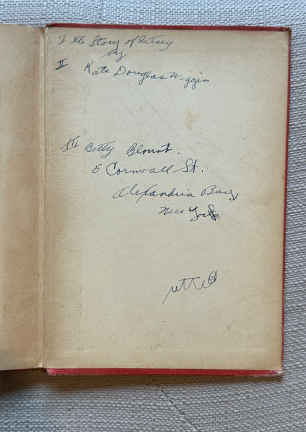 I The Story of Patsy
by
II Kate Douglas Wiggin
III Betty Blount.
E Cornwall St.
Alexandria Bay,
New York